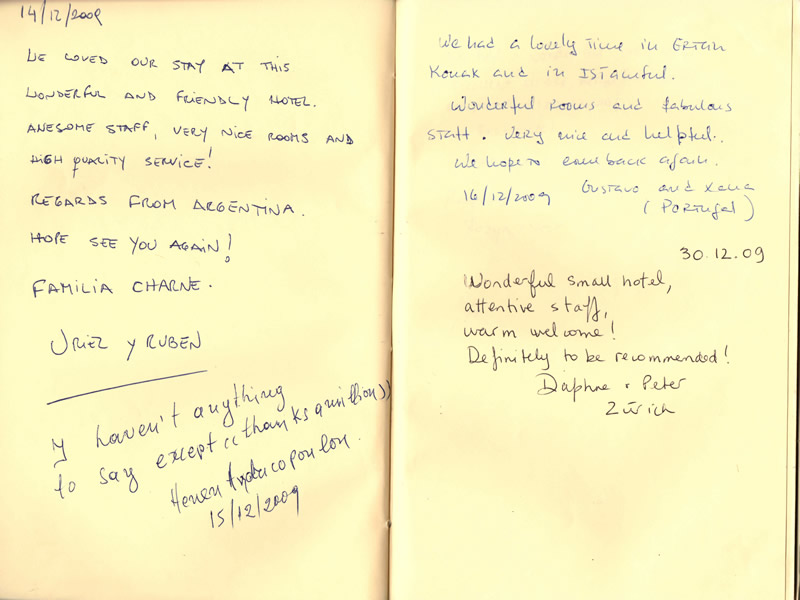 14/12/2009
WE LOVED OUR STAY AT THIS
WONDERFUL AND FRIENDLY HOTEL.
AWESOME STAFF, VERY NICE ROOMS AND
HIGH QUALITY SERVICE!
REGARDS FROM ARGENTINA.
HOPE SEE YOU AGAIN!
FAMILIA CHARNE.
URIEL Y RUBEN
I haven't anything
to say except "thanks a million"
15/12/2009
We had a lovely time in ERTAN
Konak and in ISTambul.
Wonderful rooms and fabulous
staff. Very nice and helpful.
We hope to come back again.
16/12/2009 Gustavo and Xana
(PORTUgal)
30.12.09
Wonderful small hotel,
attentive staff,
warm welcome!
Definitely to be recommended!
Daphne + Peter
Zürich